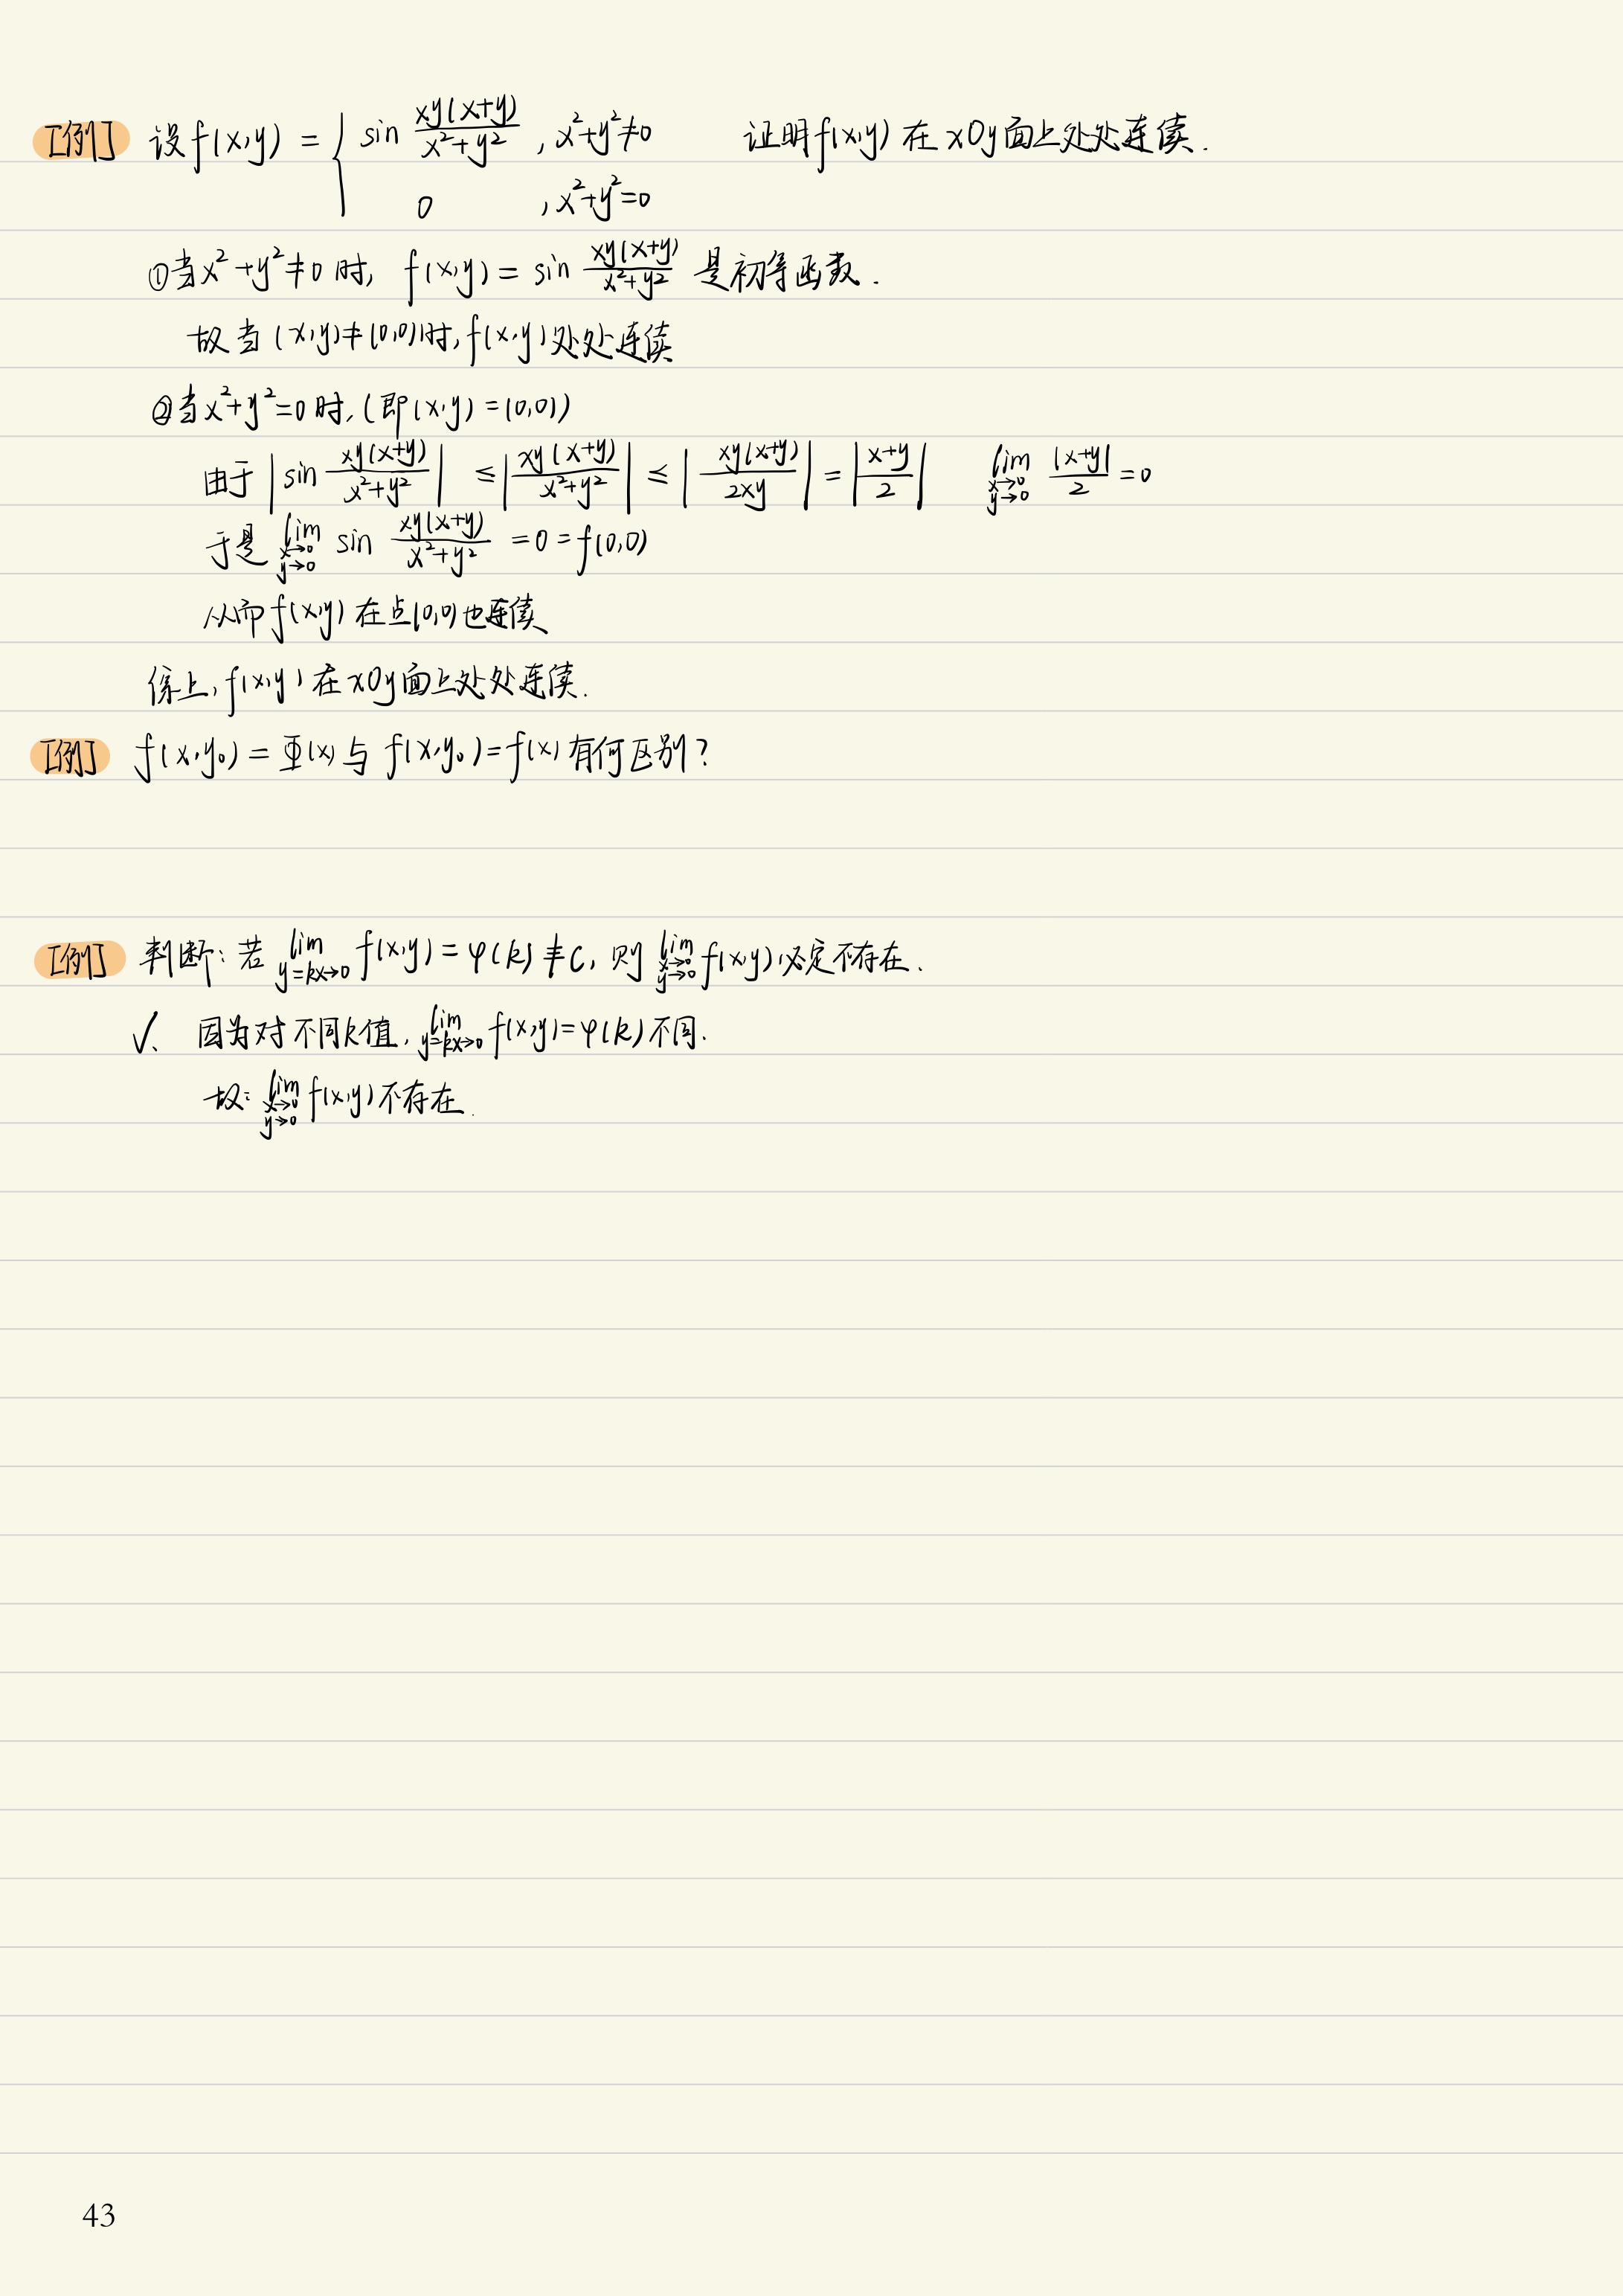 [例] 设f(x,y) = { sin xy(x+y)/(x²+y²) , x²+y²≠0 证明f(x,y)在xOy面上处处连续.
0 , x²+y²=0
①当x²+y²≠0时, f(x,y) = sin xy(x+y)/(x²+y²) 是初等函数.
故当(x,y)≠(0,0)时,f(x,y)处处连续
②当x²+y²=0时,(即(x,y)=(0,0))
由于 |sin xy(x+y)/(x²+y²)| ≤ |xy(x+y)/(x²+y²)| ≤ |xy(x+y)/2xy| = |(x+y)/2| lim_{x→0 y→0} |x+y|/2 = 0
于是 lim_{x→0 y→0} sin xy(x+y)/(x²+y²) = 0 = f(0,0)
从而f(x,y)在点(0,0)也连续
综上,f(x,y)在xOy面上处处连续.
[例] f(x,y₀) = Φ(x) 与 f(x,y₀) = f(x) 有何区别?
[例] 判断: 若 lim_{y=kx→0} f(x,y) = φ(k) ≢ C, 则 lim_{x→0 y→0} f(x,y)必定不存在.
√. 因为对不同k值, lim_{y=kx→0} f(x,y)=φ(k)不同.
故: lim_{x→0 y→0} f(x,y)不存在.
43